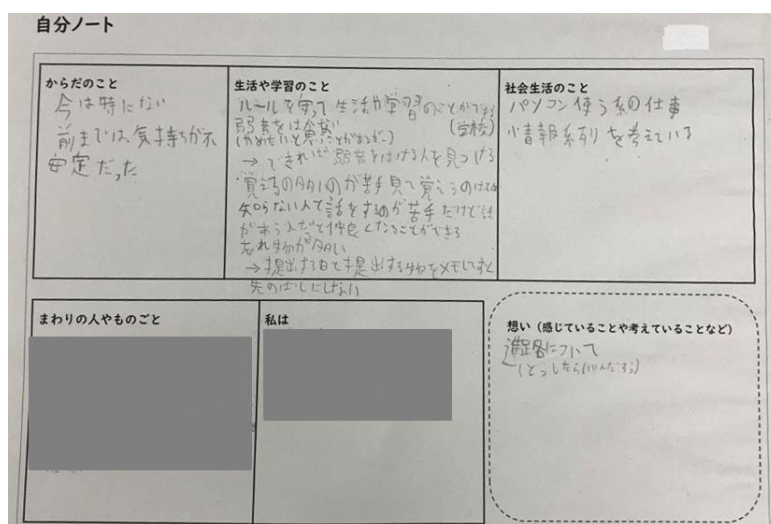 自分ノート
からだのこと
今は特にない
前までは気持ちが不
安定だった
生活や学習のこと
ルールを守って生活や学習のことができる
弱音をはかない (学校)
(やめたいと思うことがあるが)
→できれば弱音をはける人を見つける
覚えるのが苦手見て覚えるのは
知らない人と話をするのが苦手だけど話
があう人だと仲良くなることができる
忘れ物が多い
→提出する日と提出する物をメモしすぐ
先のばしにしない
社会生活のこと
パソコン使う系の仕事
情報系列を考えている
まわりの人やものごと
私は
想い（感じていることや考えていることなど）
進路について
(どうしたらいいんだろう)